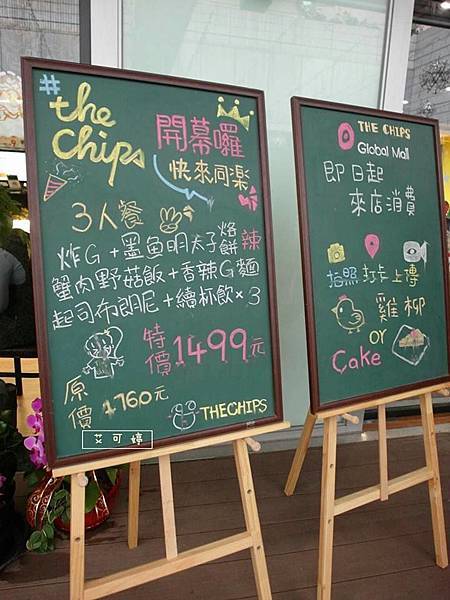 #the
chips
開幕囉
快來同樂
3人餐
炸G+墨魚明太子烙餅辣
蟹肉野菇飯+香辣G麵
起司布朗尼+續杯飲×3
特價1499元
原價1760元
THECHIPS
艾可婷
THE CHIPS
Global Mall
即日起
來店消費
拍照打卡上傳
雞柳
or
Cake